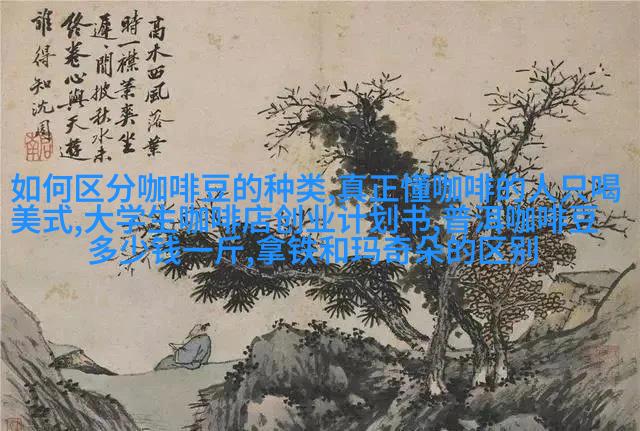 高木西風落葉
時一襟蕭爽坐
遲遲閒披秋水未
終卷心與天遊
誰得知沈周
如何区分咖啡豆的种类,真正懂咖啡的人只喝
美式,大学生咖啡店创业计划书,普洱咖啡豆
多少钱一斤,拿铁和玛奇朵的区别